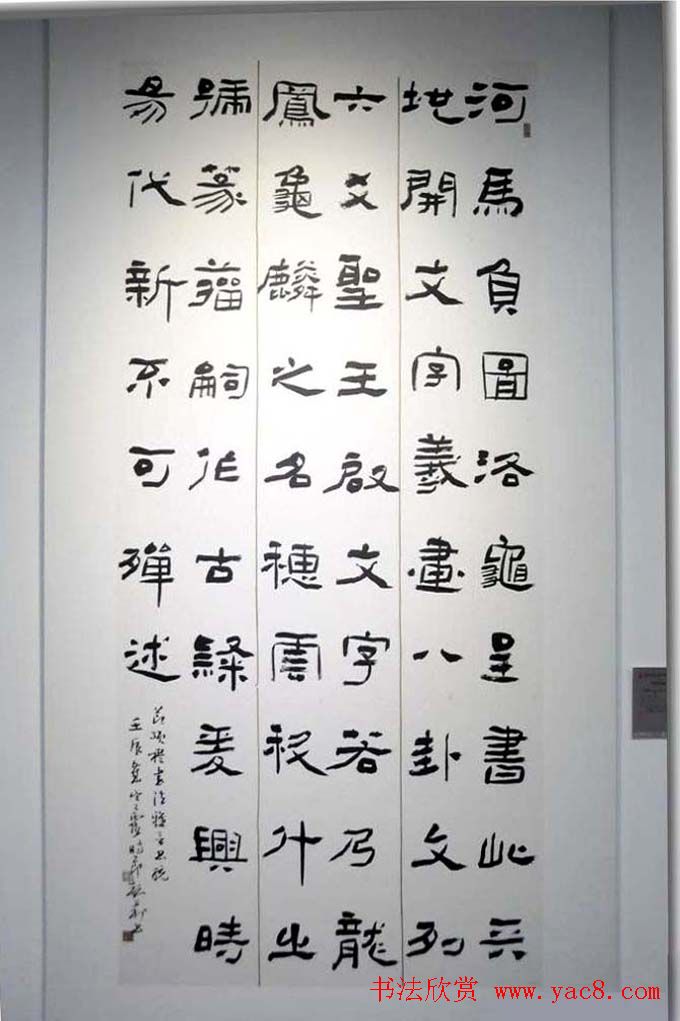 河馬負圖洛龜呈書此天
地開文字羲畫八卦文列
六爻聖王啟文字若乃龍
鳳龜麟之名穗雲科斗之
號篆籀嗣作古隸爰興時
易代新不可殫述
節項穆書法雅言書統
壬辰
书法欣赏 www.yac8.com